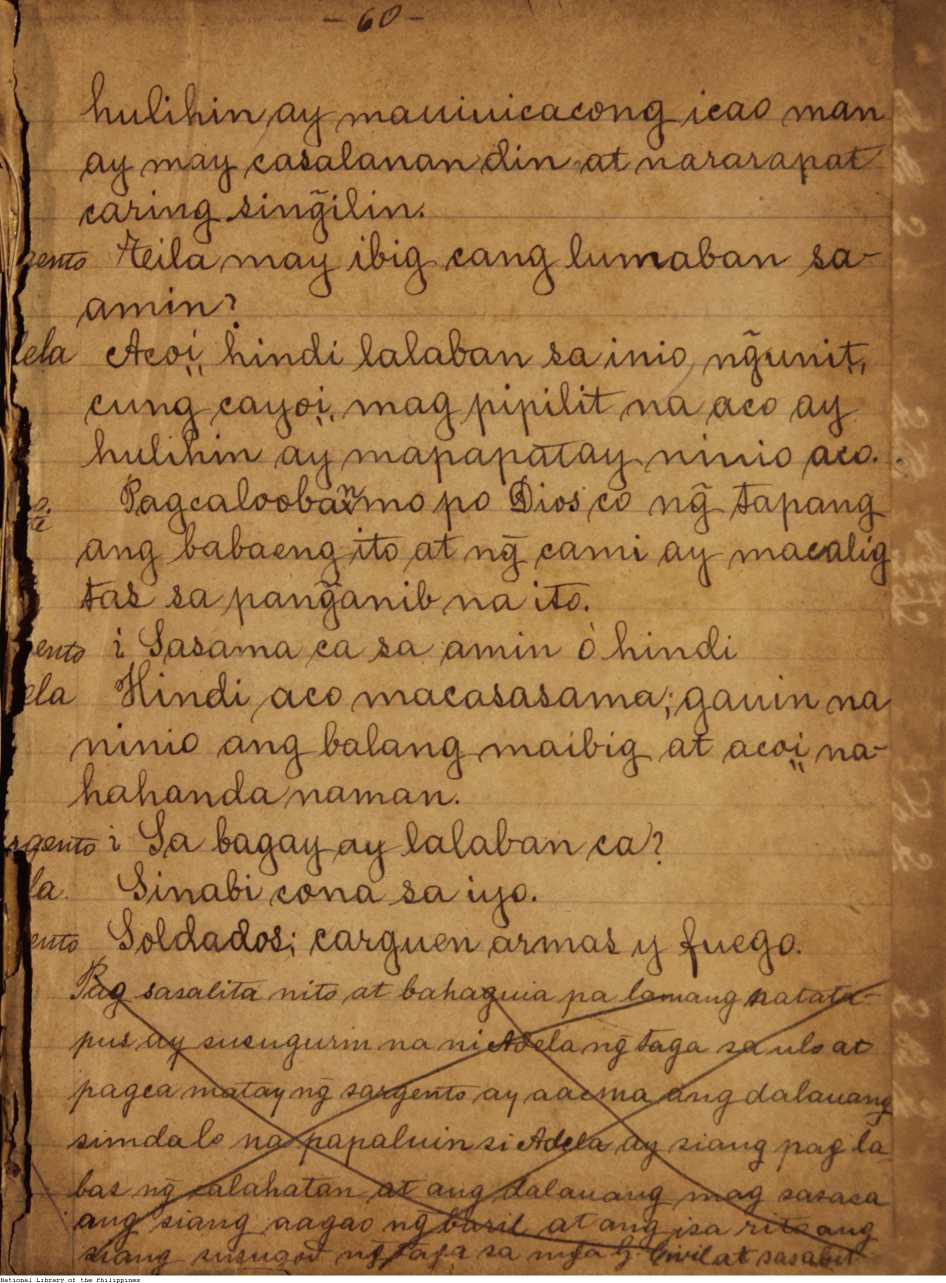 - 60 -
hulihin ay mauiuicacong icao man
ay may casalanan din at nararapat
caring sing̃ilin.
gento Teila may ibig cang lumaban sa-
amin?
ela Acoi, hindi lalaban sa inio, ng̃unit,
cung cayoi, mag pipilit na aco ay
hulihin ay mapapatay ninio aco.
Pagcalooban mo po Dios co ng̃ tapang
ang babaeng ito at ng̃ cami ay macalig
tas sa pang̃anib na ito.
ento ¿ Sasama ca sa amin ò hindi
ela Hindi aco macasasama; gauin na
ninio ang balang maibig at acoi na-
hahanda naman.
rgento ¿ Sa bagay ay lalaban ca?
la. Sinabi cona sa iyo.
ento Soldados; carguen armas y fuego.
Pag sasalita nito at bahaguia pa lamang natata-
pus ay susugurin na ni Adela ng̃ taga sa ulo at
pagca matay ng̃ sargento ay aacma ang dalauang
sundalo na papaluin si Adela ay siang pag la
bas ng̃ calahatan at ang dalauang mag sasaca
ang siang aagao ng̃ baril at ang isa rito ang
siang susugod ng̃ taga sa mga G. Civil at sasabit
National Library of the Philippines